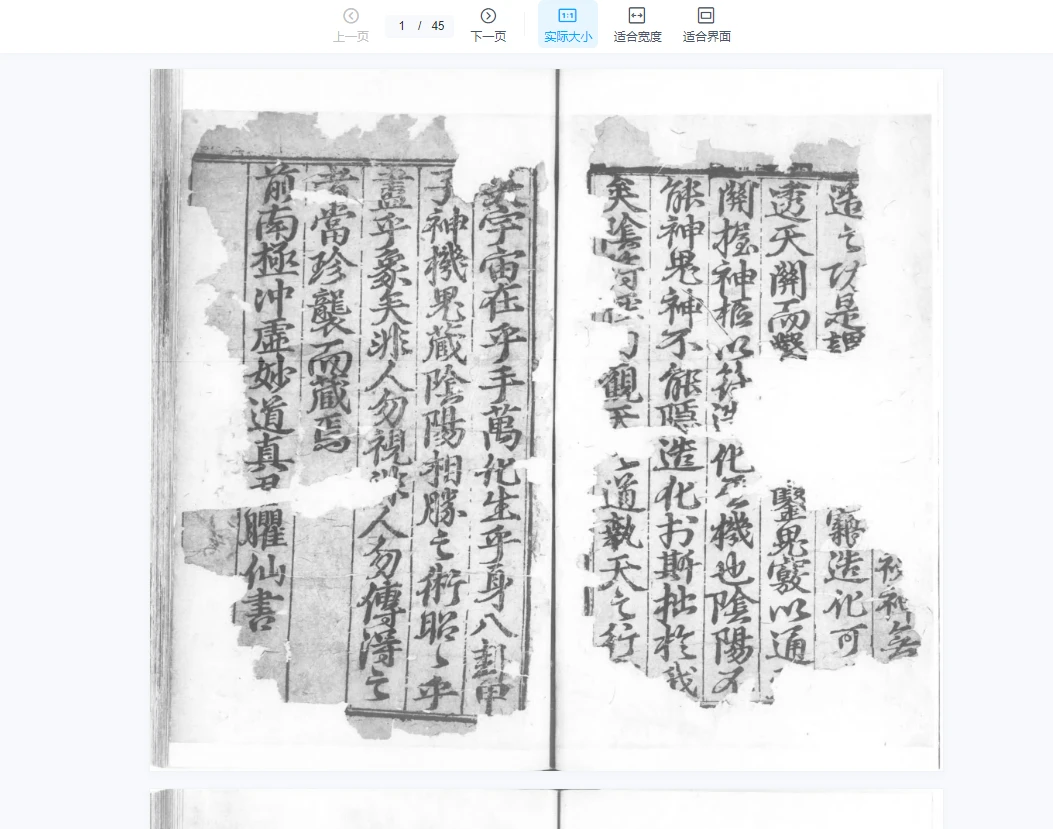 上一页
1 / 45
下一页
实际大小
适合宽度
适合界面
無
造之功是謂 竊造化可
透天關而 鑿鬼竅以通
關握神樞以 造化之機也陰陽不
能神鬼神不能隱造化於斯拙於哉
矣 觀天之道執天之行
宇宙在乎手萬化生乎身八卦甲
子神機鬼藏陰陽相勝之術昭〻乎
盡乎象矣非人勿視非人勿傳得之
者當珍襲而藏焉
前南極沖虛妙道真君臞仙書